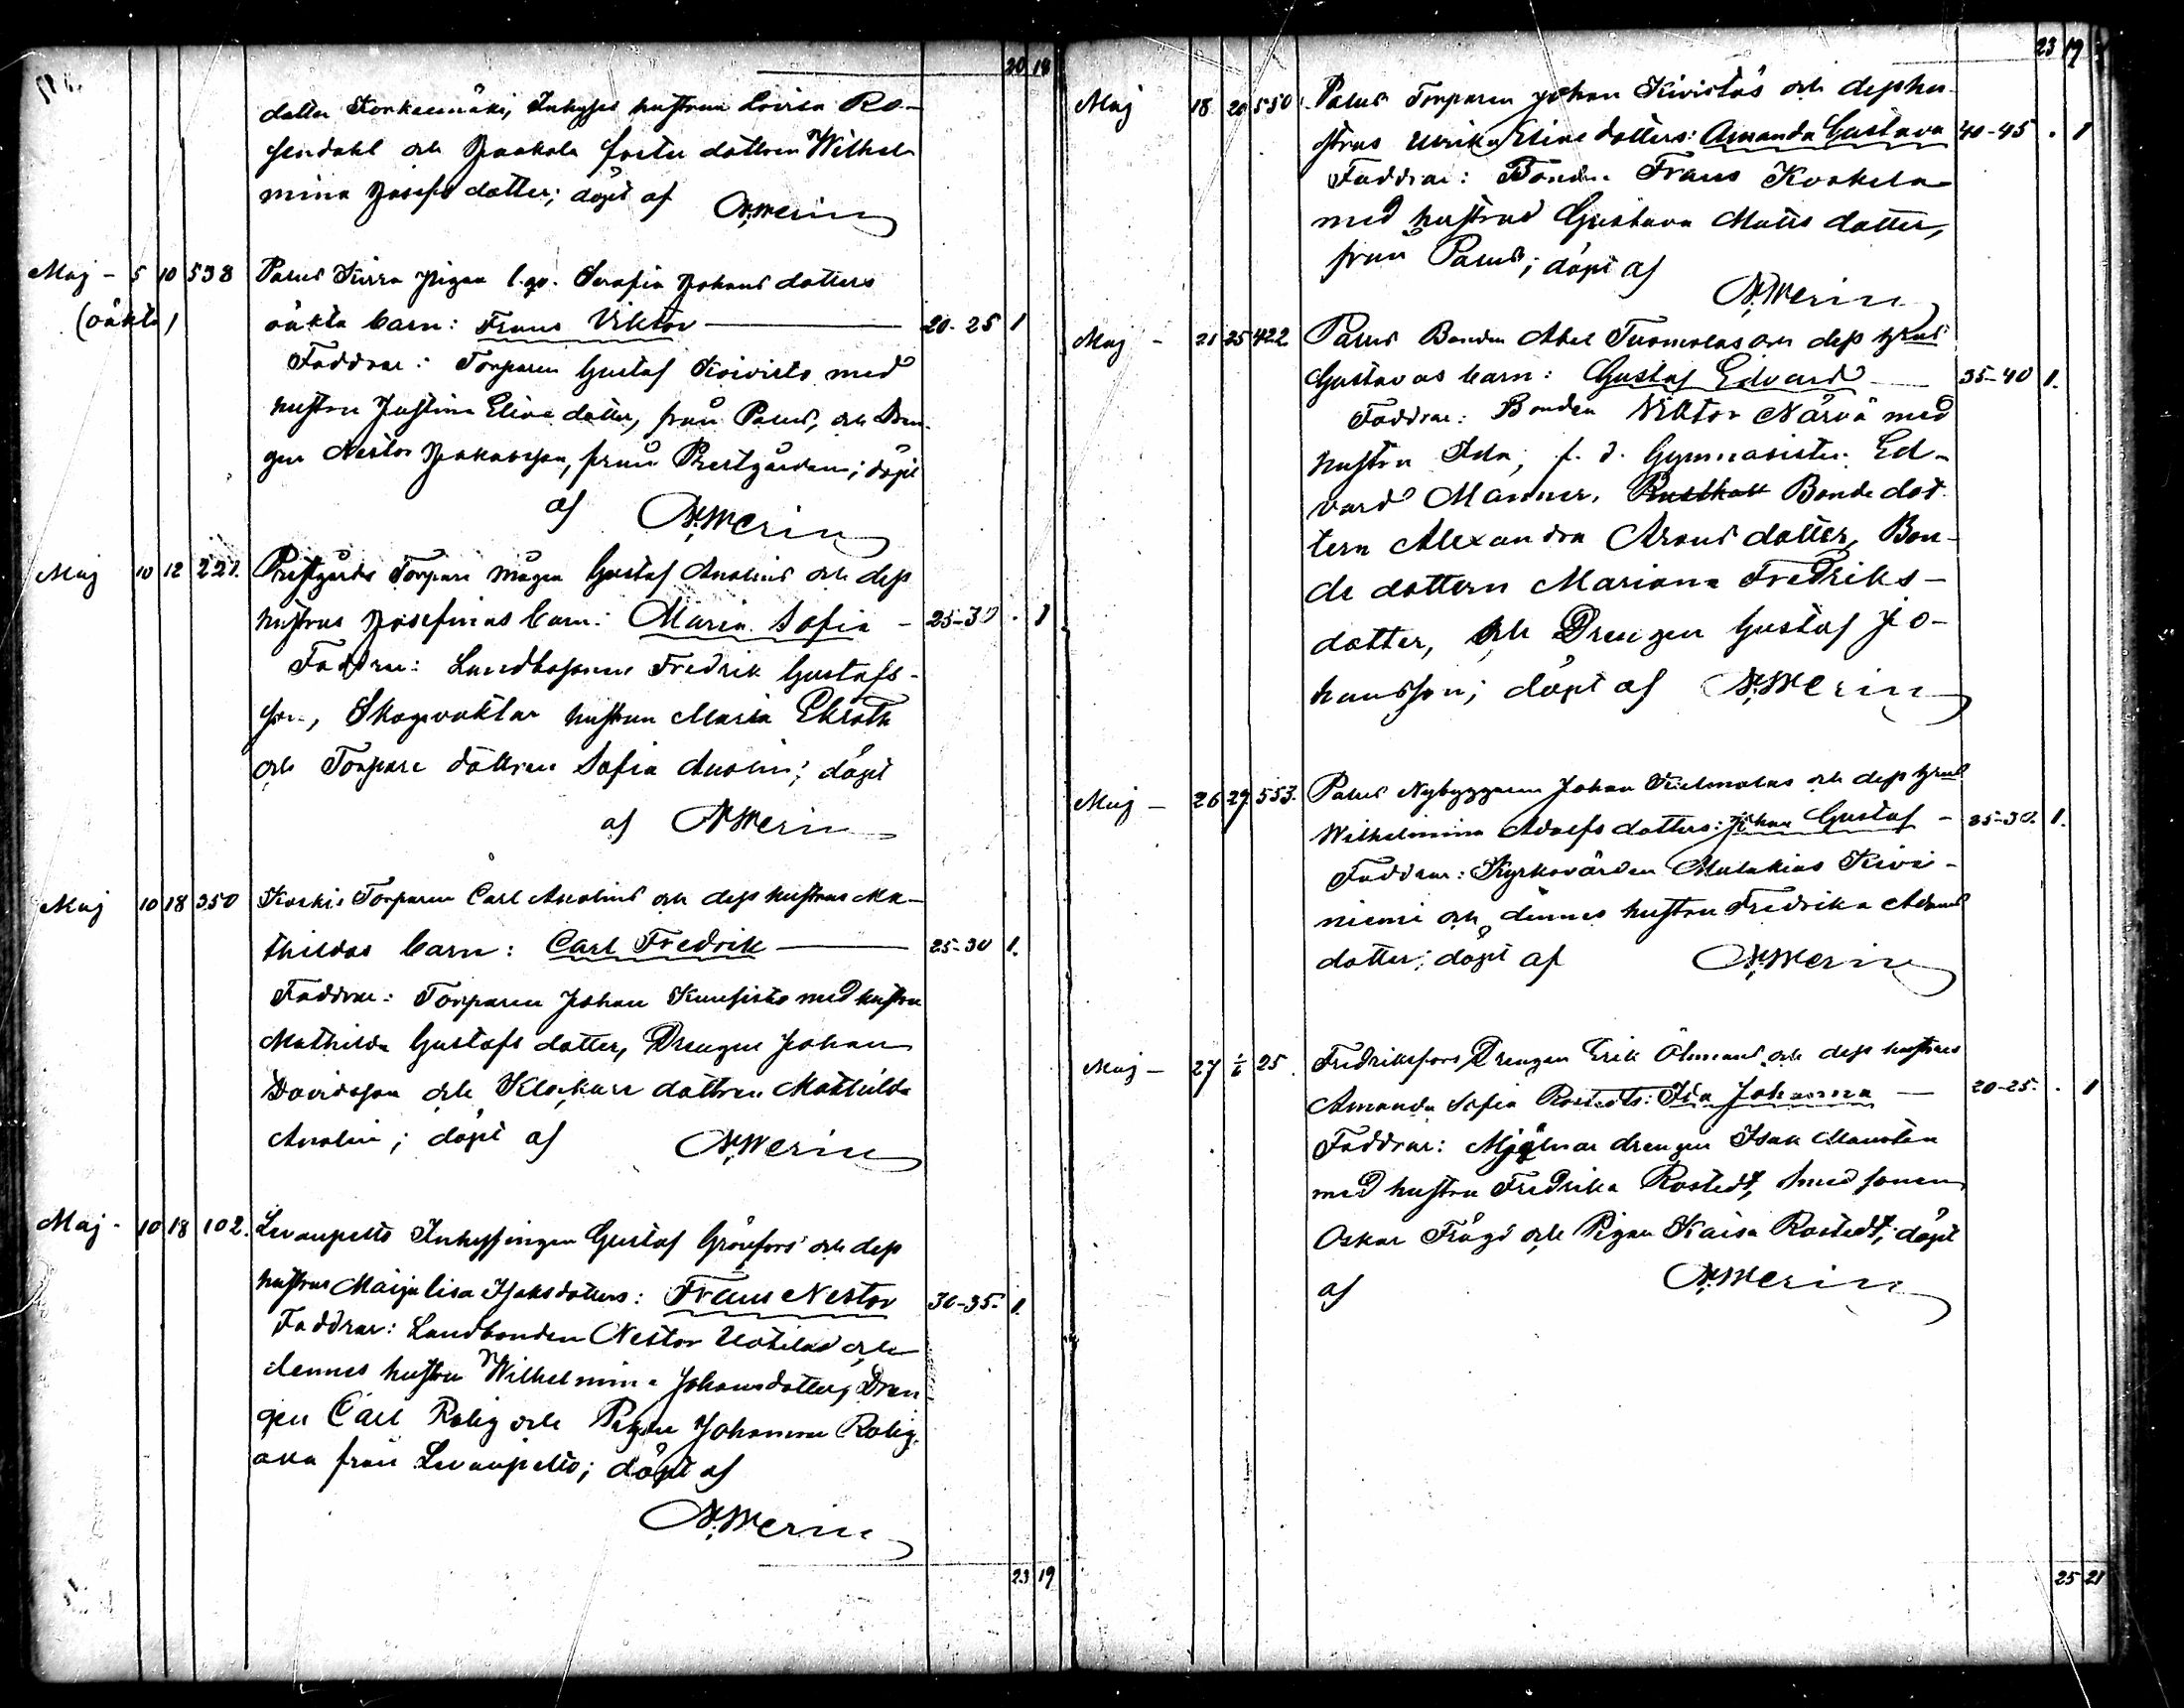 20 18
dotter Korkeemäki, Inhyses hustrun Lovisa Ro-
sendahl och Jaakola foster dottren Wilhel
mina Josefs dotter; döpt af N. Merin
Maj - 5 10 538 Palus Kirra Pigan l.go. Serafia Johans dotters
(oäkta) oäkta barn: Frans Viktor 20-25 1
Faddrar: Torparen Gustaf Koivisto med
hustru Justina Elias dotter, från Palus, och Dren-
gen Nestor Jakobsson, från Prestgården; döpt
af N. Merin
Maj 10 12 221. Prestgårds Torpare mågen Gustaf Anolins och dess
hustrus Josefinas barn: Maria Sofia - 25-30 . 1
Faddrar: Landbosonen Fredrik Gustafs-
son, Skogvaktar hustrun Maria Ekroth
och Torpare dottren Sofia Anolin; döpt
af N. Merin
Maj 10 18 350 Koskis Torparen Carl Anolins och dess hustrus Ma-
thildas barn: Carl Fredrik 25-30 1.
Faddrar: Torparen Johan Kuusisto med hustru
Mathilda Gustafs dotter, Drengen Johan
Davidsson och Klockare dottren Mathilda
Anolin; döpt af N. Merin
Maj - 10 18 102. Levanpelto Inhysingen Gustaf Grönfors och dess
hustrus Maija Lisa Isaksdotters: Frans Nestor 30-35. 1.
Faddrar: Landbonden Nestor Uotila och
dennes hustru Wilhelmina Johansdotter, Dren-
gen Carl Rolig och Pigan Johanna Rolig,
alla från Levanpelto; döpt af
N. Merin
23 19
23 19
Maj 18 20 550. Palus Torparen Johan Kivistös och dess hu-
strus Ulrika Elias dotters: Amanda Gustava 40-45 . 1
Faddrar: Bonden Frans Kvokela
med hustrus Gustava Matts dotter,
från Palus; döpt af
N. Merin
Maj - 21 25 422 Palus Bonden Abel Tuomolas och dess hstrus
Gustavas barn: Gustaf Edvard 35-40 1.
Faddrar: Bonden Viktor Närvä med
hustru Ida, f.d. Gymnasisten Ed-
vard Manner, Rusthåll Bonde dot
tern Alexandra Arons dotter, Bon-
de dottern Mariana Fredriks-
dotter, och Drengen Gustaf Jo-
hansson; döpt af N. Merin
Maj - 26 29 553. Palus Nybyggaren Johan och dess hstrus
Wilhelmina Adolfs dotters: Johan Gustaf - 25-30. 1.
Faddrar: Kyrkovärden Malakias Kivi-
niemi och dennes hustru Fredrika Adams
dotter; döpt af N. Merin
Maj - 27 1/6 25. Fredriksfors Drengen Erik Öhmans och dess hustrus
Amanda Sofia Rostedts: Ida Johanna - 20-25. . 1
Faddrar: Mjölnar drengen Isak Manstén
med hustru Fredrika Rostedt, Smed sonen
Oskar Frågt och Pigan Kaisa Rostedt; döpt
af N. Merin
25 21